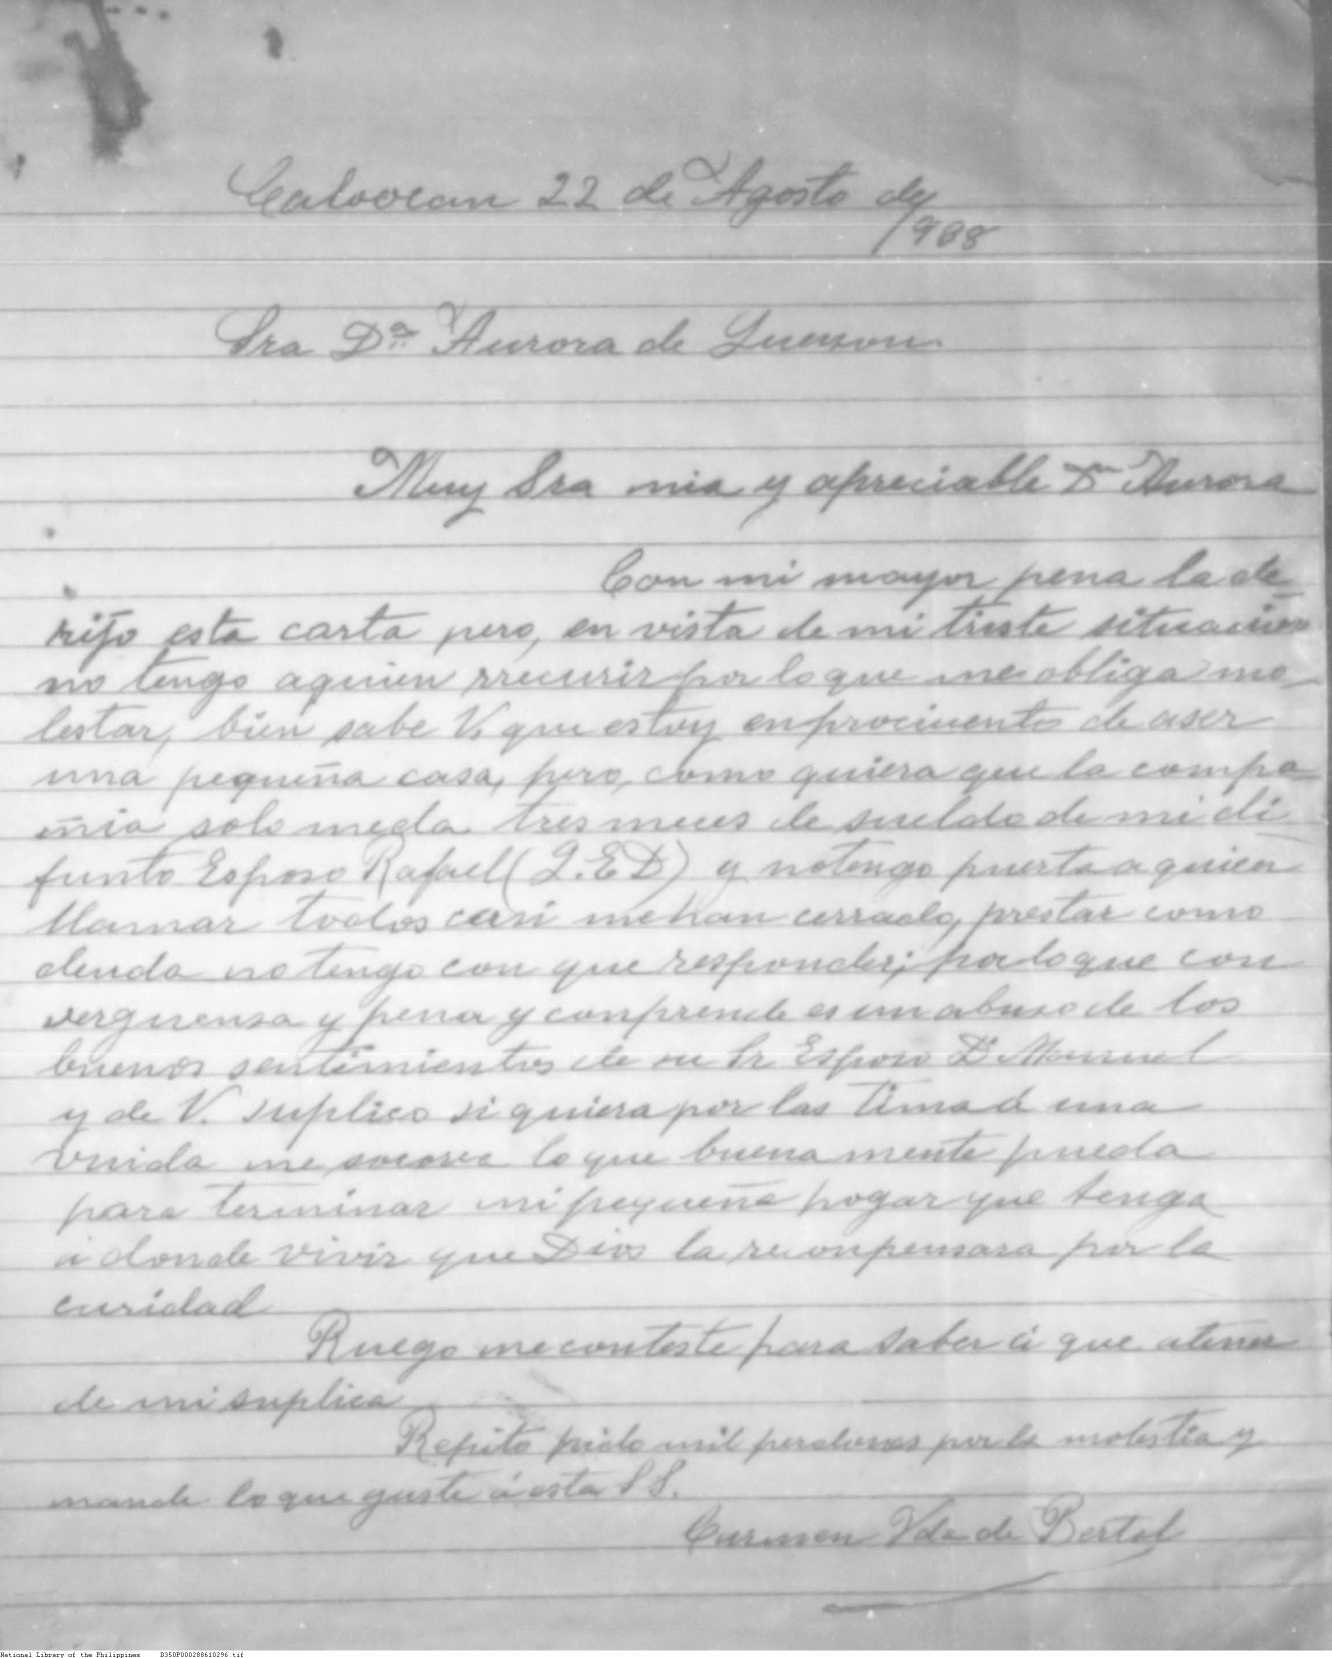 Caloocan 22 de Agosto de
1938
Sra Dª Aurora de Quezon.
Muy Sra mia y apreciable Dª Aurora
Con mi mayor pena la de
rijo esta carta pero, en vista de mi trieste situacion
no tengo aquien rrecurir por loque me obliga mo-
lestar, bien sabe V. que estoy en procimento de aser
una pequeña casa, pero, como quiera que la compa
ñia solo meda tres meces de sueldo de mi di
funto Esposo Rafael (Q.E.D) y notengo puerta a quien
llamar todos casi mehan cerrado, prestar como
deuda no tengo con que responder; por loque con
verguensa y pena y conprende es un abuso de los
buenos sentimientos de su Sr Esposo Dn Manuel
y de V. suplico si quiera por las tima á una
viuda me socorra lo que buena mente pueda
para terminar mi pequeña hogar que tenga
á donde vivir que Dios la reconpensara por la
caridad
Ruego me conteste para saber á que atener
de mi suplica
Repito pido mil perdones por la molestia y
mande lo que guste á esta S S.
Carmen Vda de Bertol
National Library of the Philippines D350P000288610296.tif